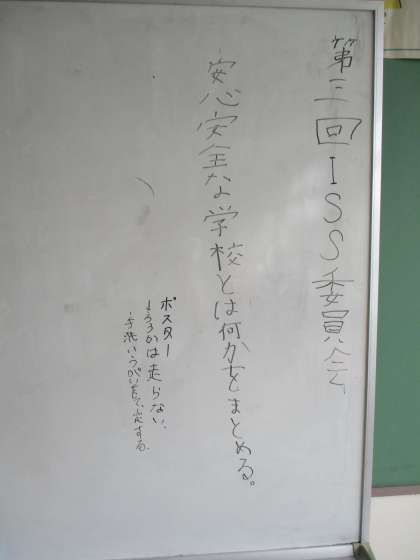 第三回ISS委員会
安心安全な学校とは何かをまとめる。
ポスター
ろうかは走らない、
手洗いうがいを
する。